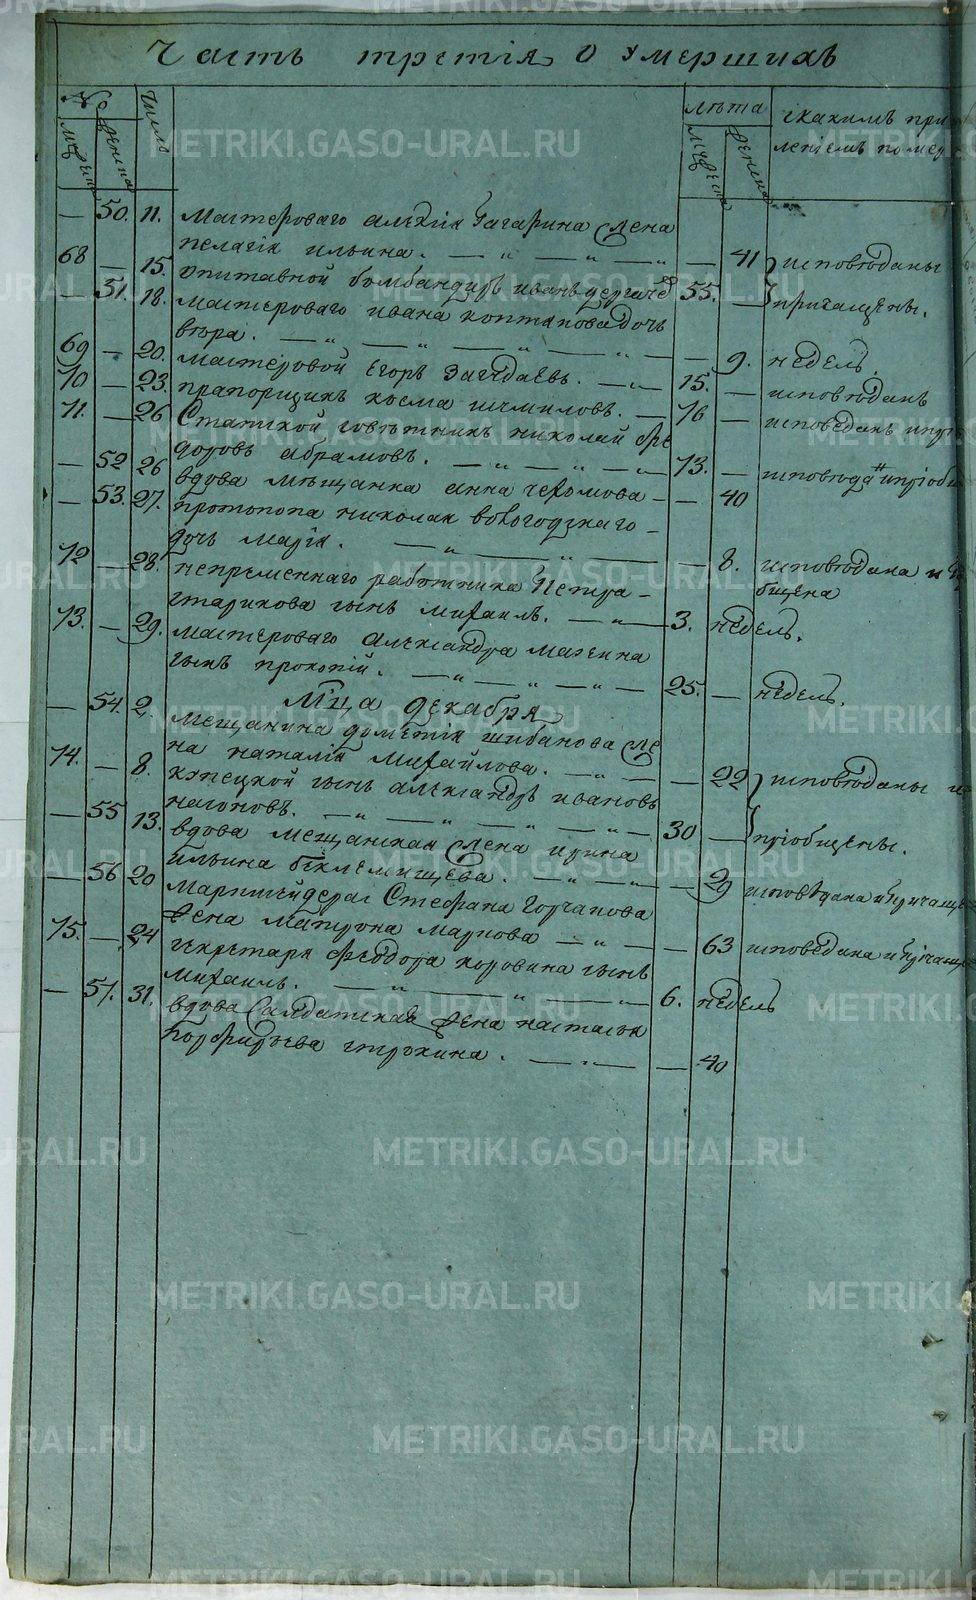 Часть третія о умершихъ
№ число лѣта скакимъ при
мужеска женска мужеска женска
50. 11. Мастероваго Алексія Гагарина жена
пелагія ильина. 41 исповѣданы
68 15. Опитавной бомбандиръ иванъ 55. причащены.
51. 18. мастероваго ивана дочь
вѣра. 9. недель.
69 20. мастеровой Егорь 15. исповѣданъ
70 23. прапорщикъ косма шемиловъ. 76 исповѣданъ
71. 26 Статской совѣтникъ николай Фе
доровъ абрамовъ. 73.
52 26 вдова мѣщанка анна 40
53. 27. протопопа николая вологодзкаго
дочь марія. 8. исповѣдана и
бщена
72 28. непременнаго работника Петра
старикова сынъ михаилъ. 3. недель.
73. 29. мастероваго александра мазенина
сынъ прокопій. 25. недель.
М'ца декабря
54. 2. мещанина дометія шибанова же
на наталія михайлова. 22 исповѣданы и
74. 8. купецкой сынъ александръ ивановъ
нагоновъ. 30 пріобщены.
55 13. вдова мещанская жена ирина
ильина беклемищева. 29 исповѣдана и причаще
56 20 маркшейдера Стефана Горчакова
жена матрона маркова 63 исповѣдана и причаще
75. 24 секретаря феодора коровина сынъ
михаилъ. 6. недель
57. 31. вдова Салдатская жена настасья
Порфирьева 40
METRIKI.GASO-URAL.RU